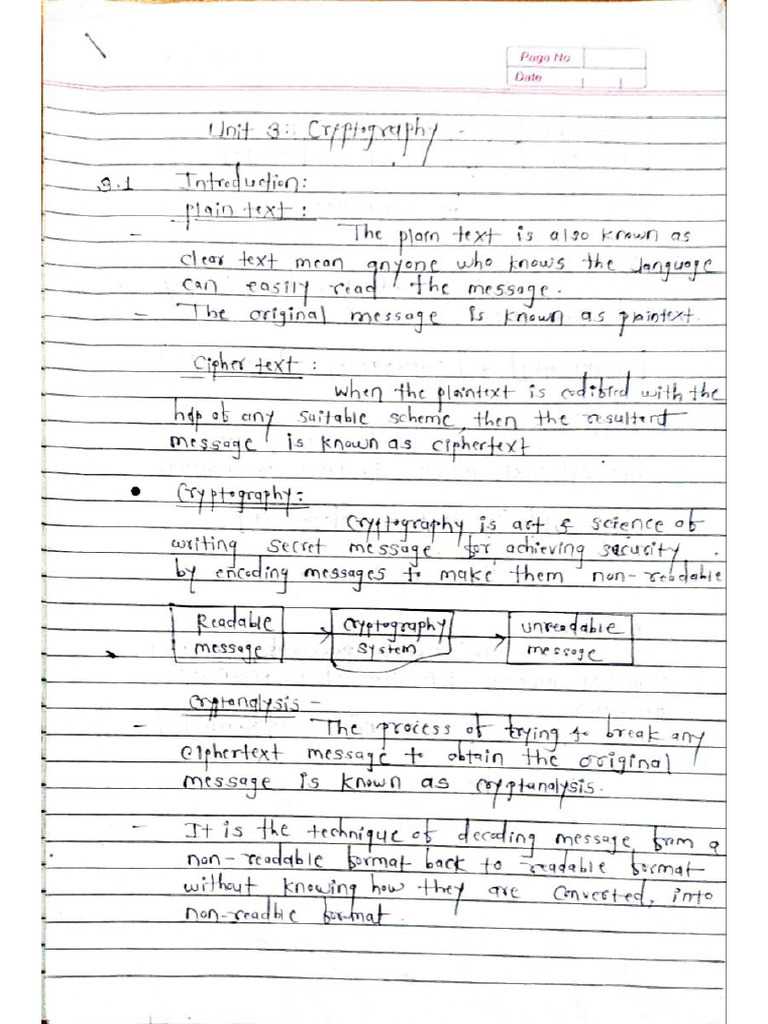 Page No
Date
Unit 3: Cryptography -
3.1 Introduction:
plain text :
- The plain text is also known as
clear text mean anyone who knows the language
can easily read the message.
- The original message is known as plaintext.
Cipher text :
When the plaintext is codified with the
help of any suitable scheme, then the resultent
message is known as ciphertext
• Cryptography:
Cryptography is art & science of
writing secret message for achieving security
by encoding messages to make them non-readable
Readable cryptography unreadable
message system message
Cryptanalysis -
- The process of trying to break any
ciphertext message to obtain the original
message is known as cryptanalysis.
- It is the technique of decoding message from a
non-readable format back to readable format
without knowing how they are converted, into
non-readble format.